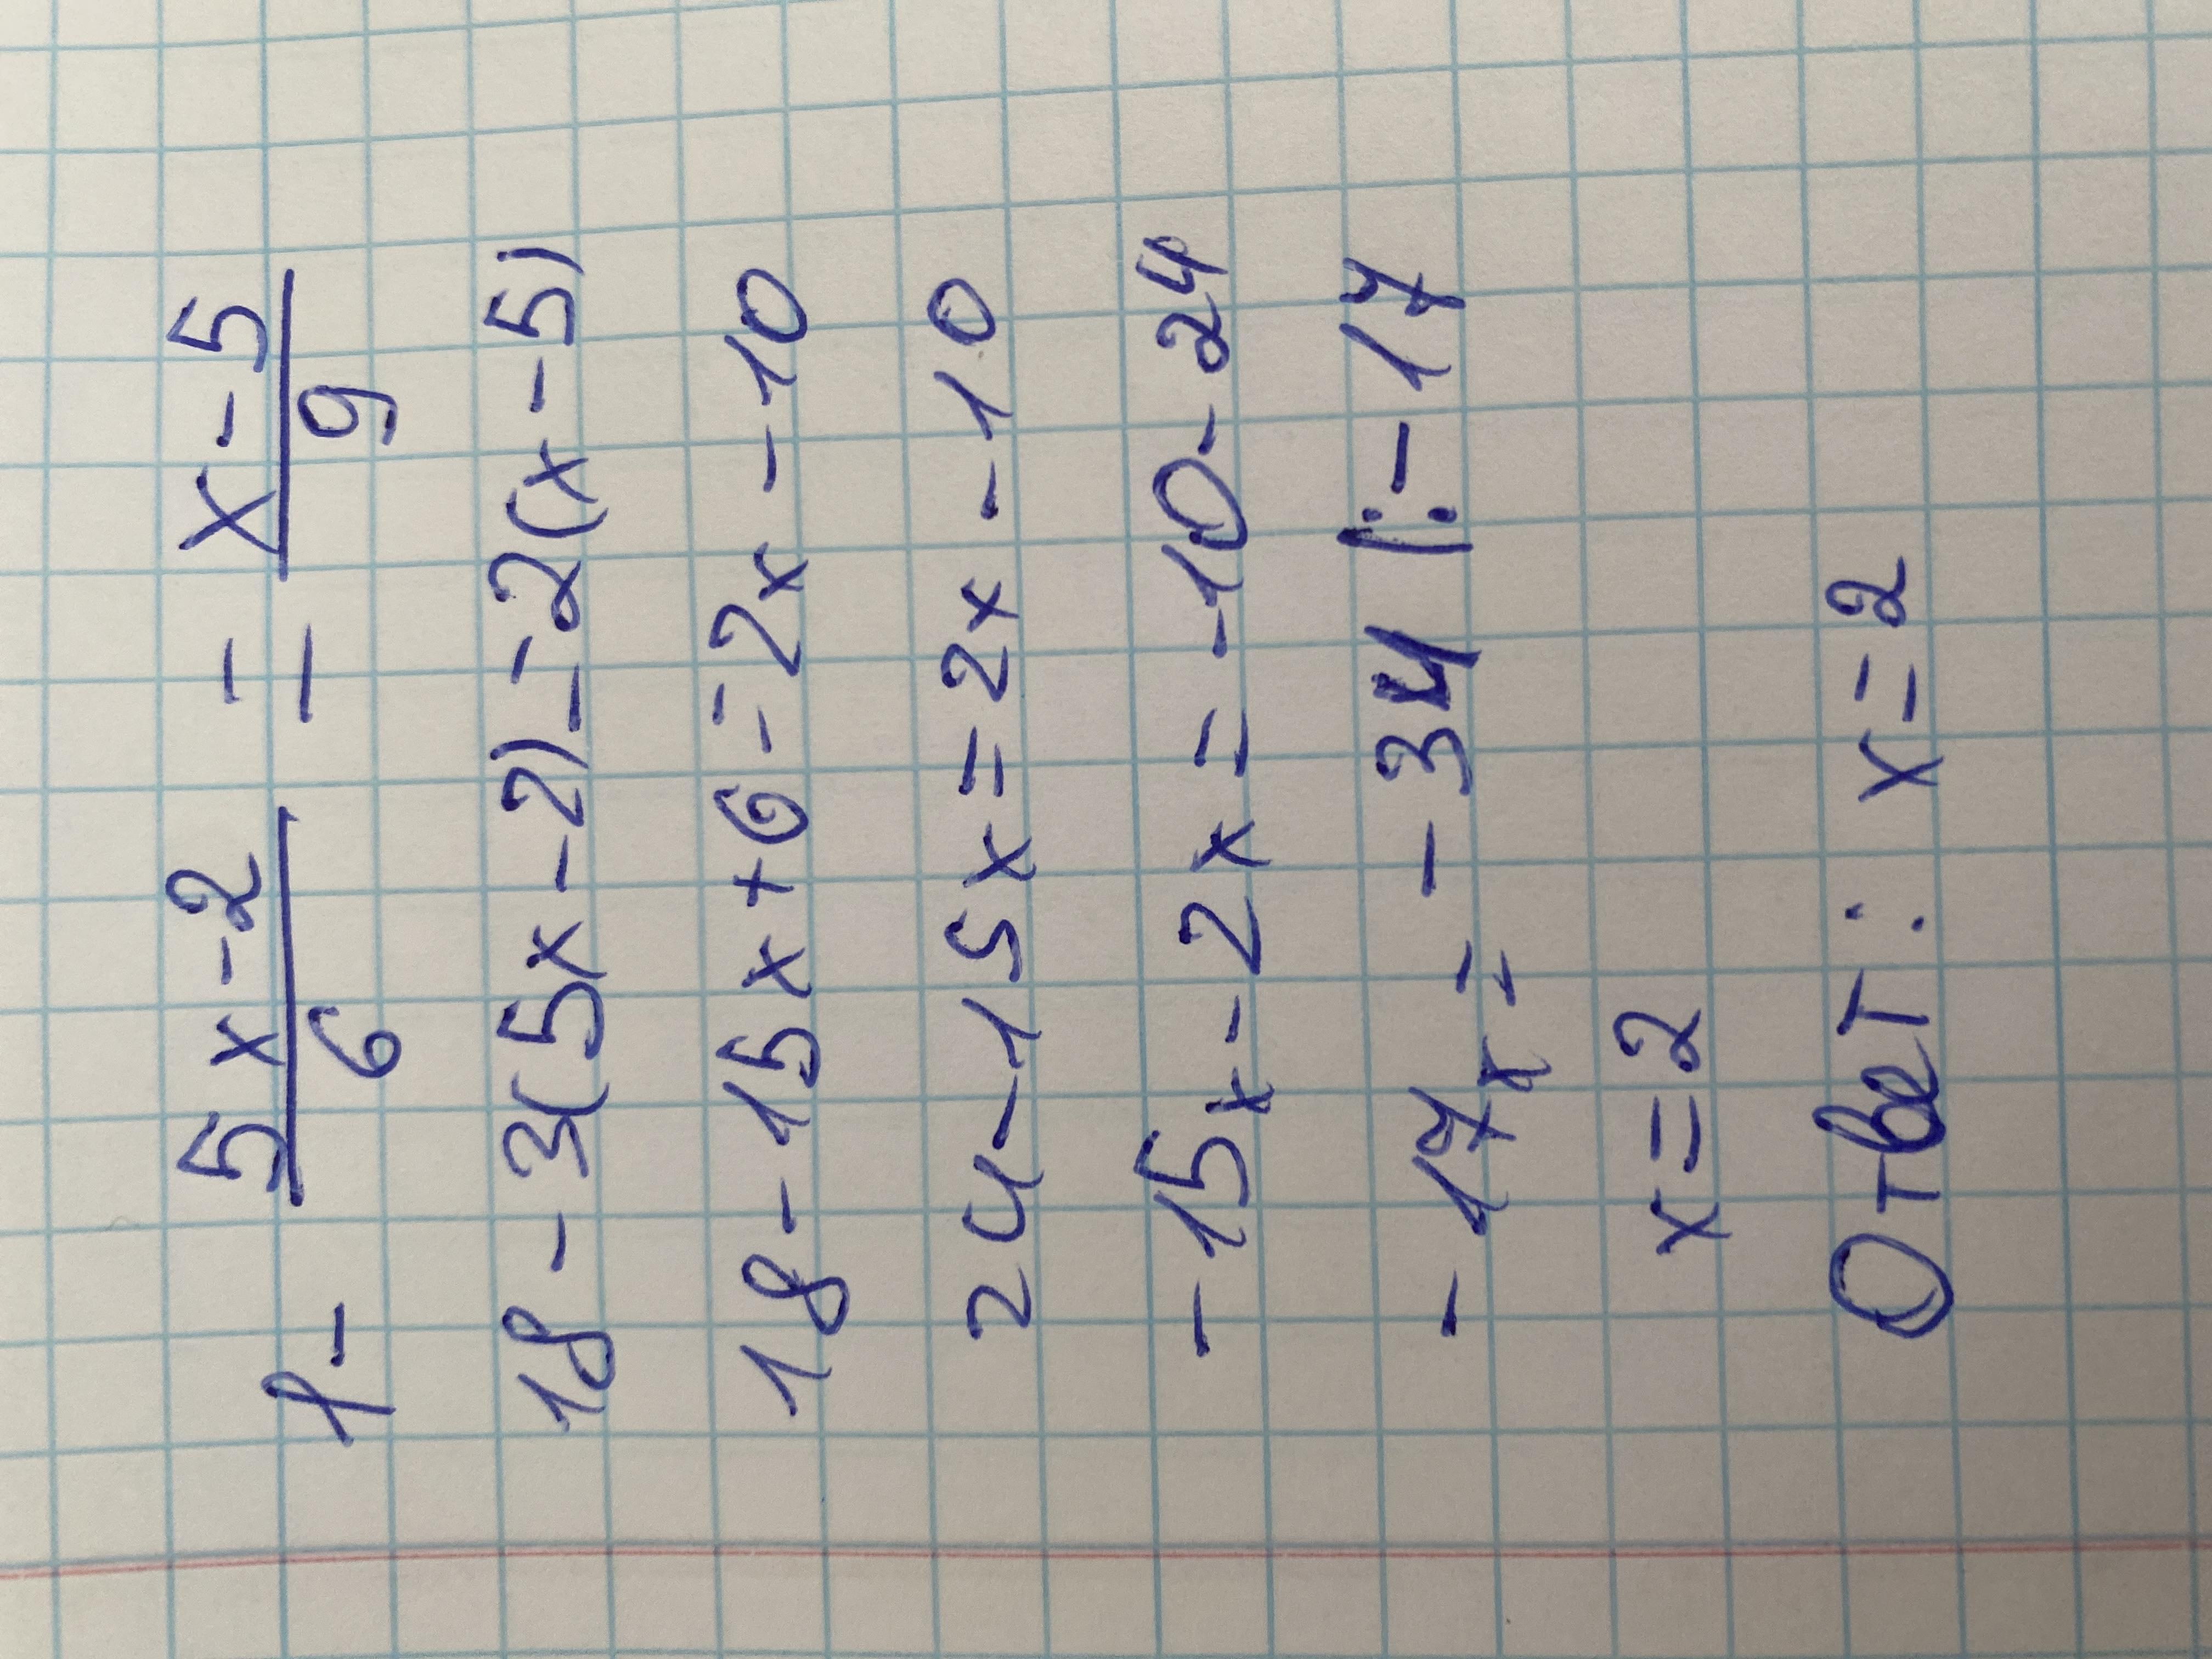 1 - (5x-2)/6 = (x-5)/9
18 - 3(5x-2) = 2(x-5)
18 - 15x + 6 = 2x - 10
24 - 15x = 2x - 10
-15x - 2x = -10 - 24
-17x = -34 |: -17
x = 2
Ответ: x = 2